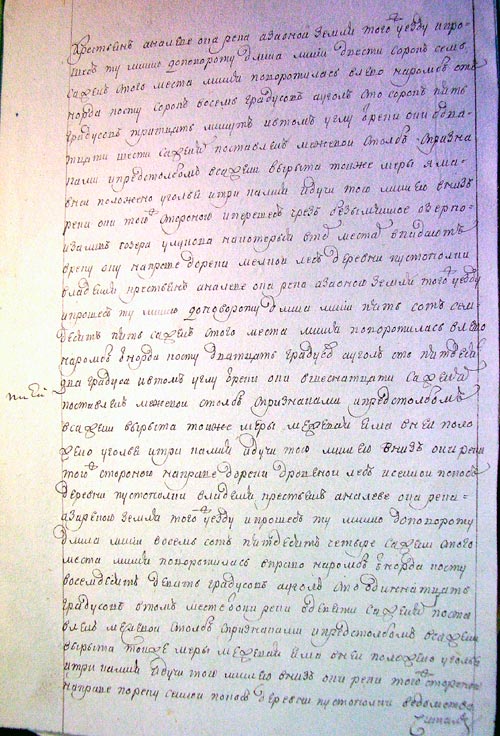 крестьянъ аналеве она река азаоною Земли того уезду ипро
шедъ ту линию доповороту длина линии двести сорокъ семь
саженъ стого места линия поворотилась влево наромбъ отъ
норда косту сорокъ восемь градусовъ ауголъ сто сорокъ пять
градусовъ тритцать минутъ ивтомъ углу вреки они отва
тцати шести саженяхъ поставленъ межевои столбъ спризна
ками ипредстолбомъ всажени вырыта тоежъ меры яма
вней положено уголья итри камни идучи тою линиею внизъ
реки они того стороною иперешедъ чрезъ безымянное озерко
изаливъ
вреку ону направе дореки мелкои лесъ деревни пустополни
владения крестьянъ аналеве она река азаоною Земли того уезду
ипрошедъ ту линию доповороту длина линии пять сотъ сем
десятъ пять саженъ стого места линия поворотилась влево
наромбъ внорда косту дватцать градусовъ ауголъ сто пятдесятъ
два градуса ивтомъ углу вреки они вшеснатцати саженяхъ
поставленъ межевои столбъ спризнаками ипредстолбомъ
всажени вырыта тоежъ меры межевая яма вней поло
жено уголье итри камни идучи тою линиею внизъ они реки
того стороною направе дореки дровеной лесъ исенной покосъ
деревни пустополни владения крестьянъ аналеве она река
азарекою Земли того уезду ипрошедъ ту линию доповороту
длина линии восемь сотъ пятдесятъ четыре сажени стого
места линия поворотилась вправо наромбъ внорда косту
восемдесятъ девять градусовъ ауголъ сто одиннатцать
градусовъ втомъ месте они реки вдевяти саженяхъ поста
вленъ межевои столбъ спризнаками ипредстолбомъ всажени
вырыта тоежъ меры межевая яма вней положено уголье
итри камни идучи тою линиею внизъ они реки того стороною
направе пореку сенной покосъ деревни пустополни ведомства